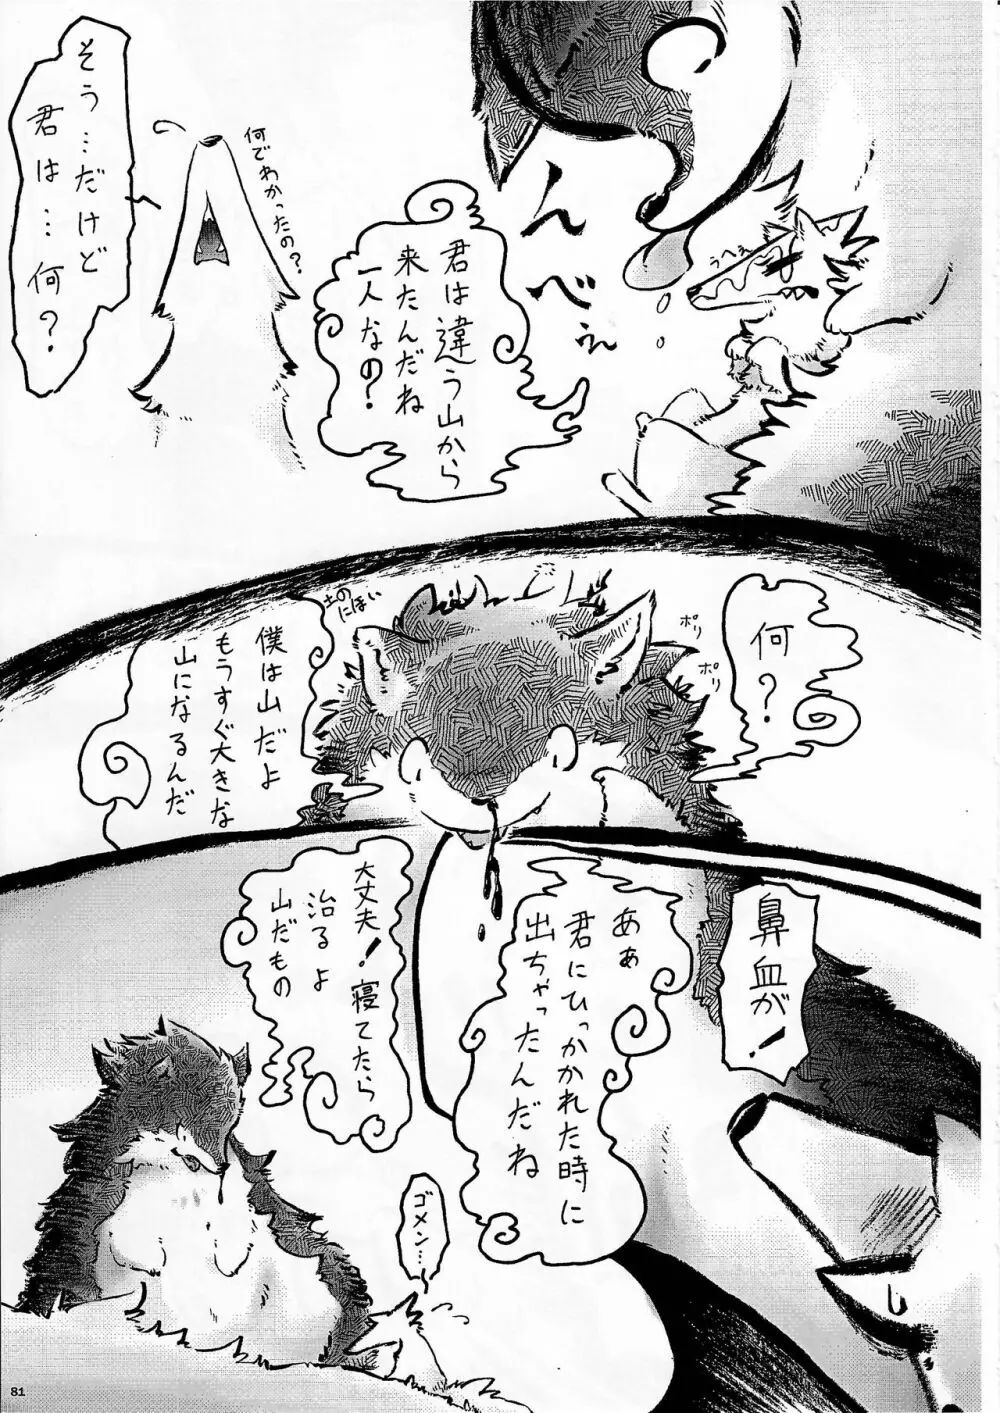 んべぇ
うへぇ
君は違う山から
来たんだね
一人なの？
何でわかったの？
そう…だけど
君は…何？
何？
ポリ
ポリ
土の
にほい
僕は山だよ
もうすぐ大きな
山になるんだ
鼻血が！
あぁ
君にひっかかれた時に
出ちゃったんだね
大丈夫！寝てたら
治るよ
山だもの
ゴメン…
81